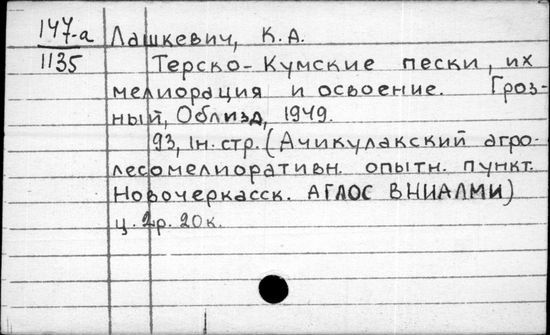 147-а Лашкевич, К.А.
1135 Терско-Кумские пески, их
мелиорация и освоение. Гроз-
ный, Облизд, 1949.
93, 1н.стр. (Ачикулакский агро-
лесомелиоративн. опытн. пункт.
Новочеркасск. АГЛОС ВНИАЛМИ)
ц. 2р. 20к.